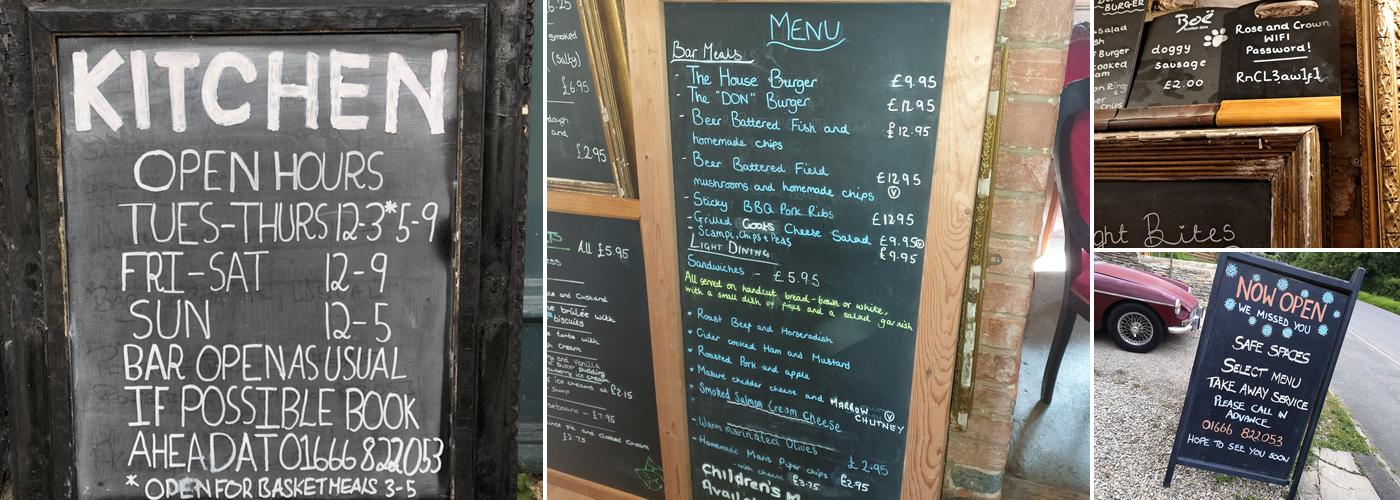 KITCHEN
OPEN HOURS
TUES-THURS 12-3*5-9
FRI-SAT 12-9
SUN 12-5
BAR OPEN AS USUAL
IF POSSIBLE BOOK
AHEAD AT 01666 822053
* OPEN FOR BASKET MEALS 3-5
£6.25
smoked
(salty)
£6.95
dough
and
£2.95
All £5.95
and Custard
brûlée with
biscuits
with
Cream
and Vanilla
pudding
ice cream
ice creams at £2.15
scoop
- £7.95
and clotted cream
£2.75
MENU
Bar Meals
- The House Burger £9.95
- The "DON" Burger £12.95
- Beer Battered Fish and £12.95
homemade chips
- Beer Battered Field £12.95
mushrooms and homemade chips V
- Sticky BBQ Pork Ribs £12.95
- Grilled Goats Cheese Salad £9.95 V
- Scampi, Chips & Peas £9.95
LIGHT DINING
Sandwiches - £5.95
All served on handcut bread - brown or white,
with a small dish of fries and a salad garnish
Roast Beef and Horseradish
Cider cooked Ham and Mustard
Roasted Pork and apple
Mature chedder cheese and MARROW V
CHUTNEY
Smoked Salmon Cream Cheese
- Warm Marinated Olives £2.95
- Homemade Maris Piper chips £2.95
- with cheese £3.75
Children's M
Availa
BURGER
Salad
Burger
cooked
Ring
chips
Boë
doggy
sausage
£2.00
Rose and Crown
WIFI
Password!
RnCL3aw1f1
ght Bites
NOW OPEN
WE MISSED YOU
SAFE SPACES
SELECT MENU
TAKE AWAY SERVICE
PLEASE CALL IN
ADVANCE
01666 822053
HOPE TO SEE YOU SOON